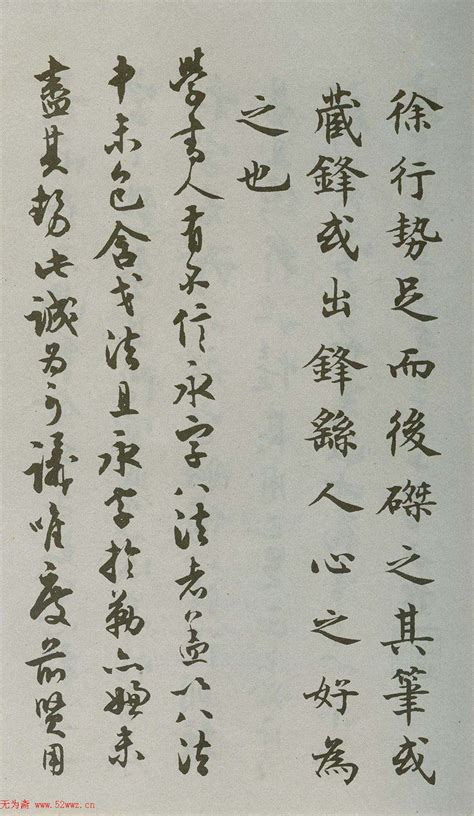 徐行勢足而後磔之其筆或
藏鋒或出鋒繇人心之好為
之也
學書人有不信永字八法者蓋以八法
中未包含戈法且永字於勒亦嫌未
盡其勢此誠為可議唯度前賢用
无为斋 www.52wwz.cn